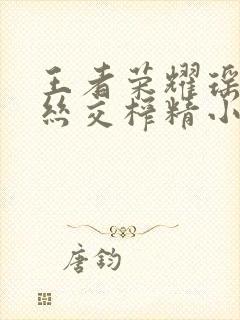 王者荣耀瑶
丝交榨精小
唐钧